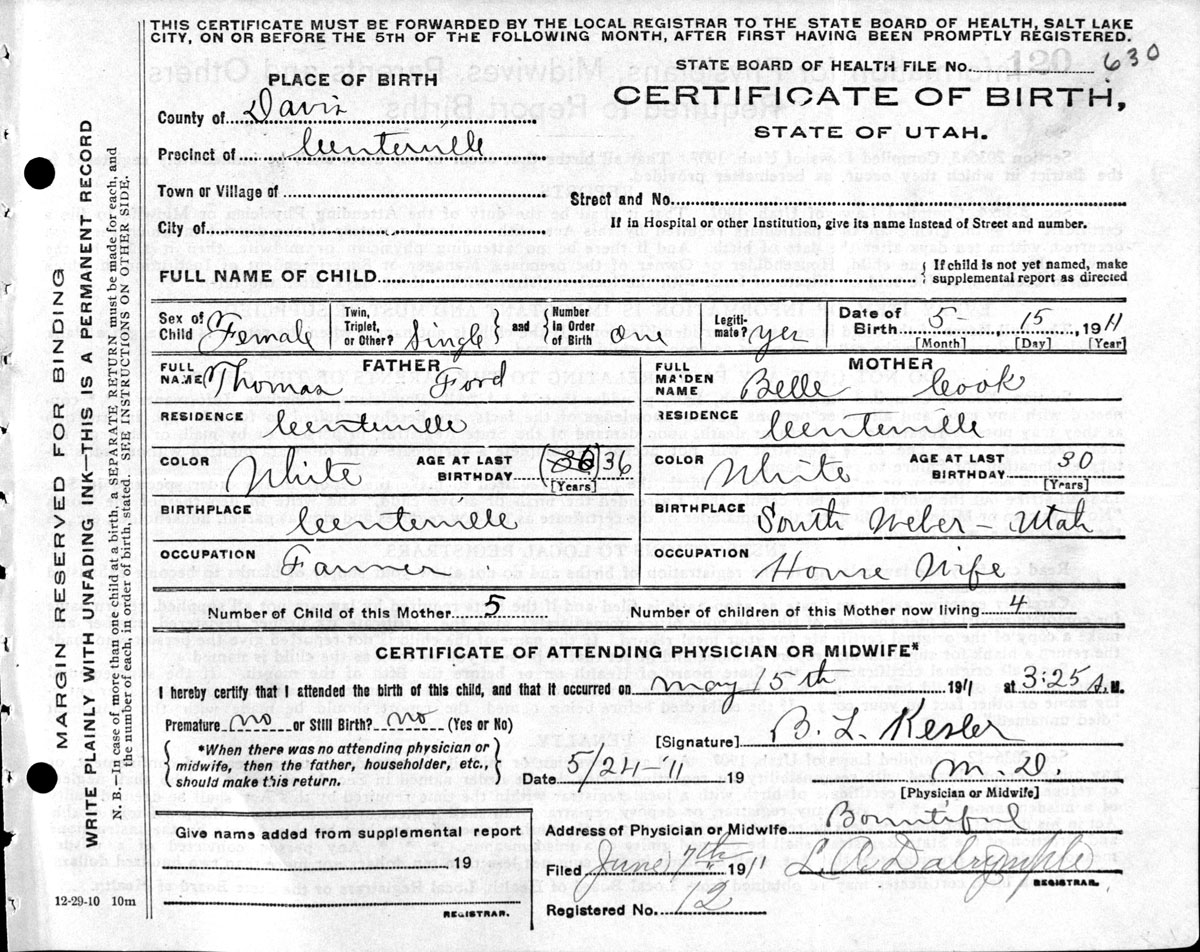 THIS CERTIFICATE MUST BE FORWARDED BY THE LOCAL REGISTRAR TO THE STATE BOARD OF HEALTH, SALT LAKE
CITY, ON OR BEFORE THE 5TH OF THE FOLLOWING MONTH, AFTER FIRST HAVING BEEN PROMPTLY REGISTERED.
STATE BOARD OF HEALTH FILE No. 630
PLACE OF BIRTH
CERTIFICATE OF BIRTH,
STATE OF UTAH.
County of Davis
Precinct of Centerville
Town or Village of
Street and No.
City of
If in Hospital or other Institution, give its name instead of Street and number.
FULL NAME OF CHILD
{ If child is not yet named, make
supplemental report as directed
Sex of Child Female
Twin, Triplet, or Other? Single } and { Number In Order of Birth one
Legiti-mate? yes
Date of Birth 5- 15 , 1911
[Month] [Day] [Year]
FATHER
FULL NAME Thomas Ford
MOTHER
FULL MAIDEN NAME Belle Cook
RESIDENCE Centerville
RESIDENCE Centerville
COLOR White AGE AT LAST BIRTHDAY 36
[Years]
COLOR White AGE AT LAST BIRTHDAY 30
[Years]
BIRTHPLACE Centerville
BIRTHPLACE South Weber - Utah
OCCUPATION Farmer
OCCUPATION House Wife
Number of Child of this Mother 5
Number of children of this Mother now living 4
CERTIFICATE OF ATTENDING PHYSICIAN OR MIDWIFE*
I hereby certify that I attended the birth of this child, and that it occurred on May 15th 1911 at 3:25 A.M.
Premature no or Still Birth? no (Yes or No)
{ *When there was no attending physician or
midwife, then the father, householder, etc.,
should make this return. }
[Signature] B. L. Kesler
M.D.
[Physician or Midwife]
Date 5/24-11 19
Give name added from supplemental report
19
REGISTRAR.
Address of Physician or Midwife Bountiful
Filed June 7th 1911 Dalrymple
REGISTRAR.
Registered No. 12
12-29-10 10m
MARGIN RESERVED FOR BINDING
WRITE PLAINLY WITH UNFADING INK—THIS IS A PERMANENT RECORD
N. B.—In case of more than one child at a birth, a SEPARATE RETURN must be made for each, and
the number of each, in order of birth, stated. (SEE INSTRUCTIONS ON OTHER SIDE.